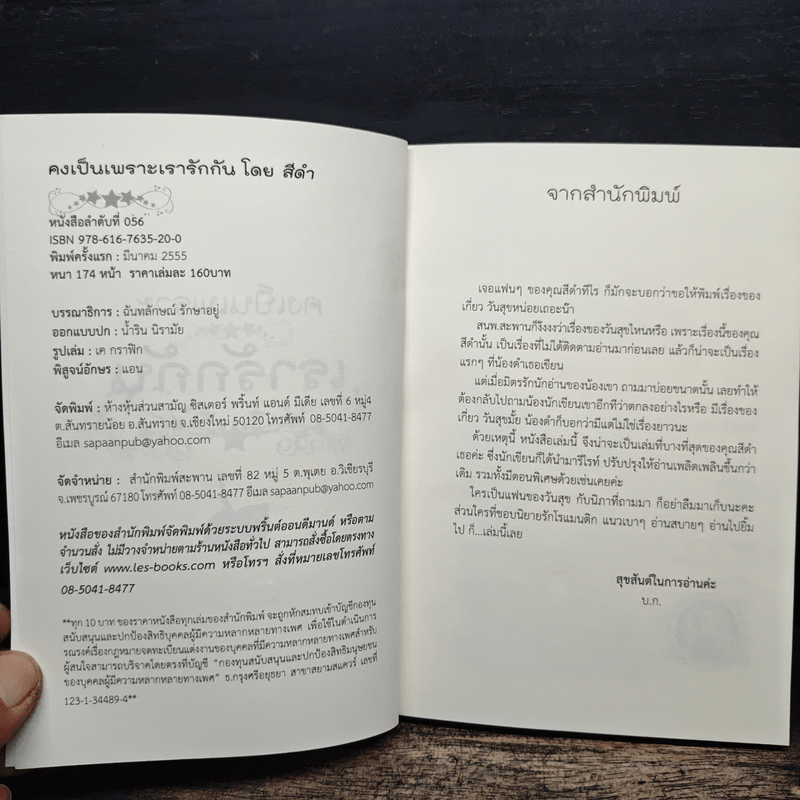 คงเป็นเพราะเรารักกัน โดย สีดำ
หนังสือลำดับที่ 056
ISBN 978-616-7635-20-0
พิมพ์ครั้งแรก : มีนาคม 2555
หนา 174 หน้า ราคาเล่มละ 160บาท
บรรณาธิการ : ฉันทลักษณ์ รักษาอยู่
ออกแบบปก : น้ำริน นิรามัย
รูปเล่ม : เค กราฟิก
พิสูจน์อักษร : แอน
จัดพิมพ์ : ห้างหุ้นส่วนสามัญ ซิสเตอร์ พริ้นท์ แอนด์ มีเดีย เลขที่ 6 หมู่4
ต.สันทรายน้อย อ.สันทราย จ.เชียงใหม่ 50120 โทรศัพท์ 08-5041-8477
อีเมล sapaanpub@yahoo.com
จัดจำหน่าย : สำนักพิมพ์สะพาน เลขที่ 82 หมู่ 5 ต.พุเตย อ.วิเชียรบุรี
จ.เพชรบูรณ์ 67180 โทรศัพท์ 08-5041-8477 อีเมล sapaanpub@yahoo.com
หนังสือของสำนักพิมพ์จัดพิมพ์ด้วยระบบพริ้นต์ออนดีมานด์ หรือตาม
จำนวนสั่ง ไม่มีวางจำหน่ายตามร้านหนังสือทั่วไป สามารถสั่งซื้อโดยตรงทาง
เว็บไซต์ www.les-books.com หรือโทรฯ สั่งที่หมายเลขโทรศัพท์
08-5041-8477
**ทุก 10 บาท ของราคาหนังสือทุกเล่มของสำนักพิมพ์ จะถูกหักสมทบเข้าบัญชีกองทุน
สนับสนุนและปกป้องสิทธิบุคคลผู้มีความหลากหลายทางเพศ เพื่อใช้ในดำเนินการ
รณรงค์เรื่องกฎหมายจดทะเบียนแต่งงานของบุคคลที่มีความหลากหลายทางเพศสำหรับ
ผู้สนใจสามารถบริจาคโดยตรงที่บัญชี "กองทุนสนับสนุนและปกป้องสิทธิมนุษยชน
ของบุคคลผู้มีความหลากหลายทางเพศ" ธ.กรุงศรีอยุธยา สาขาสยามสแควร์ เลขที่
123-1-34489-4**
จากสำนักพิมพ์
เจอแฟนๆ ของคุณสีดำทีไร ก็มักจะบอกว่าขอให้พิมพ์เรื่องของ
เกี่ยว วันสุขหน่อยเถอะน้า
สนพ.สะพานก็งึงงงว่าเรื่องของวันสุขไหนหรือ เพราะเรื่องนี้ของคุณ
สีดำนั้น เป็นเรื่องที่ไม่ได้ติดตามอ่านมาก่อนเลย แล้วก็น่าจะเป็นเรื่อง
แรกๆ ที่น้องดำเธอเขียน
แต่เมื่อมิตรรักนักอ่านของน้องเขา ถามมาบ่อยขนาดนั้น เลยทำให้
ต้องกลับไปถามน้องนักเขียนเขาอีกทีว่าตกลงอย่างไรหรือ มีเรื่องของ
เกี่ยว วันสุขมั้ย น้องดำก็บอกว่ามีแต่ไม่ใช่เรื่องยาวนะ
ด้วยเหตุนี้ หนังสือเล่มนี้ จึงน่าจะเป็นเล่มที่บางที่สุดของคุณสีดำ
เธอค่ะ ซึ่งนักเขียนก็ได้นำมารีไรท์ ปรับปรุงให้อ่านเพลิดเพลินขึ้นกว่า
เดิม รวมทั้งมีตอนพิเศษด้วยเช่นเคยค่ะ
ใครเป็นแฟนของวันสุข กับนิภาที่ถามมา ก็อย่าลืมมาเก็บนะคะ
ส่วนใครที่ชอบนิยายรักโรแมนติก แนวเบาๆ อ่านสบายๆ อ่านไปยิ้ม
ไป ก็...เล่มนี้เลย
สุขสันต์ในการอ่านค่ะ
บ.ก.